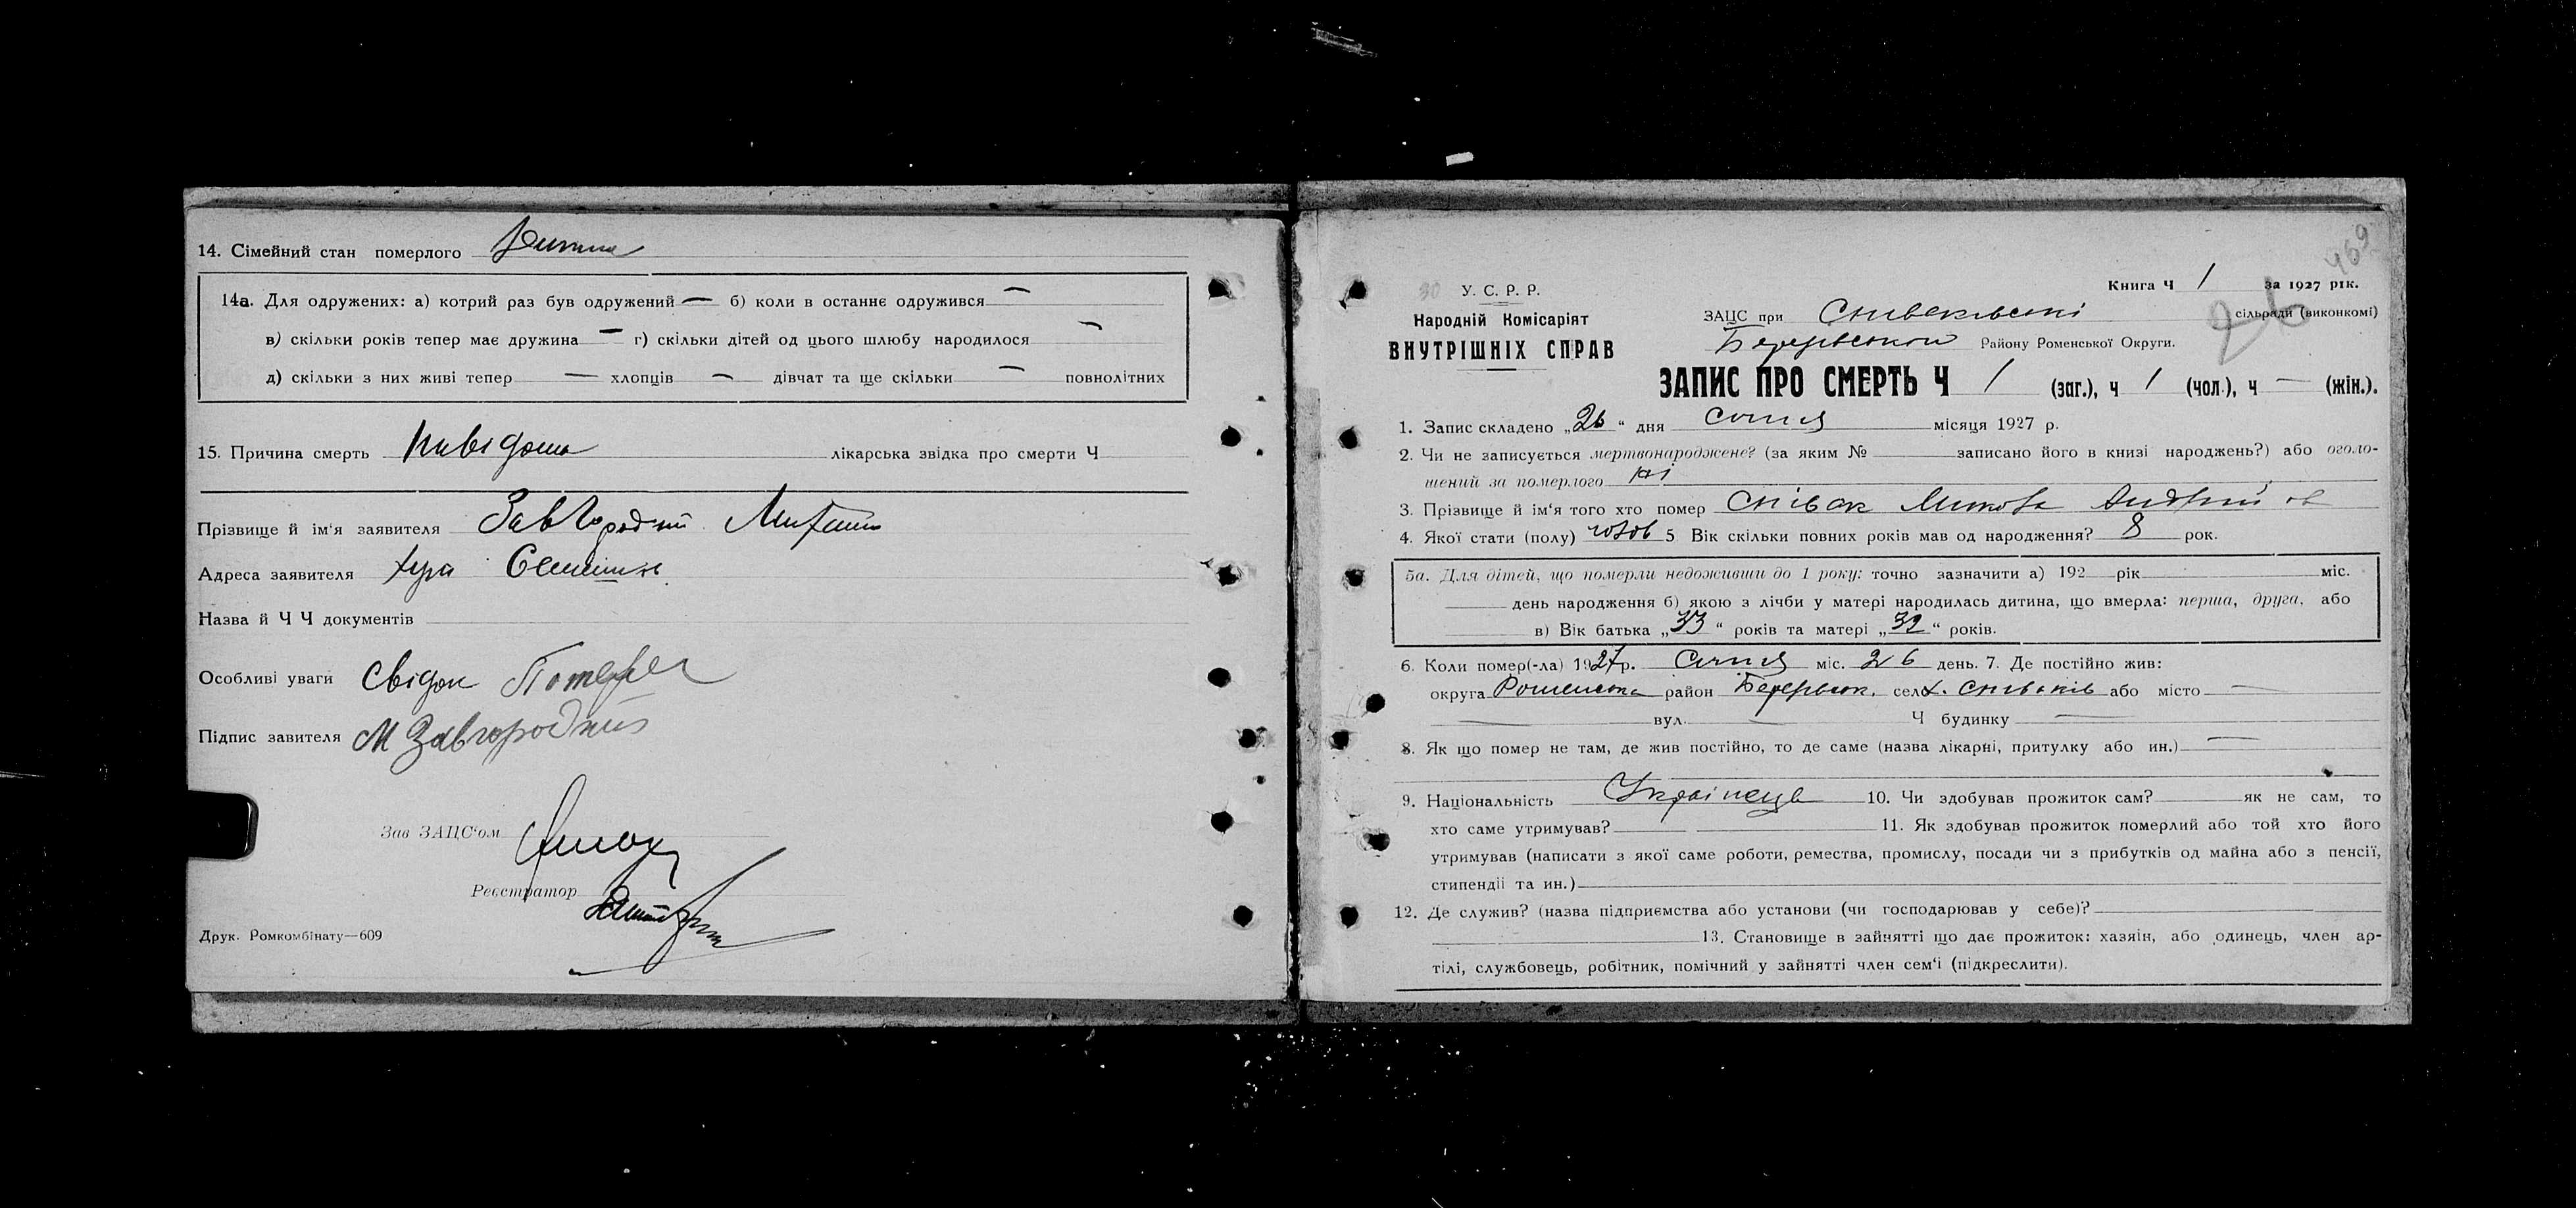 14. Сімейний стан померлого Дитина
14а. Для одружених: а) котрий раз був одружений — б) коли в останнє одружився —
в) скільки років тепер має дружина — г) скільки дітей од цього шлюбу народилося —
д) скільки з них живі тепер — хлопців — дівчат та ще скільки — повнолітних
15. Причина смерть Невідома лікарська звідка про смерти Ч
Прізвище й ім‘я заявителя Завгородній Михайло
Адреса заявителя
Назва й Ч Ч документів
Особливі уваги Свідок
Підпис завителя М Завгородний
Зав ЗАЦС‘ом
Реєстратор
Друк. Ромкомбінату—609
469
30
26
У. С. Р. Р.
Народній Комісаріят
ВНУТРІШНІХ СПРАВ
Книга Ч 1 за 1927 рік.
ЗАЦС при Співаківські сільради (виконкомі)
Району Роменської Округи.
ЗАПИС ПРО СМЕРТЬ Ч 1 (заг.), ч 1 (чол.), ч — (жін.).
1. Запис складено „26“ дня Січня місяця 1927 р.
2. Чи не записується мертвонароджене? (за яким № записано його в книзі народжень?) або оголо-
шений за померлого ні
3. Прізвище й ім‘я того хто помер Співак Микола Андрійов
4. Якої стати (полу) чолов 5 Вік скільки повних років мав од народження? 8 рок.
5а. Для дітей, що померли недоживши до 1 року: точно зазначити а) 192 рік міс.
день народження б) якою з лічби у матері народилась дитина, що вмерла: перша, друга, або
в) Вік батька „33“ років та матері „32“ років.
6. Коли помер(-ла) 1927р. Січня міс. 26 день. 7. Де постійно жив:
округа Роменська район село х. Співаків або місто —
— вул. — Ч будинку —
8. Як що помер не там, де жив постійно, то де саме (назва лікарні, притулку або ин.) —
9. Національність Українець 10. Чи здобував прожиток сам? як не сам, то
хто саме утримував? 11. Як здобував прожиток померлий або той хто його
утримував (написати з якої саме роботи, ремества, промислу, посади чи з прибутків од майна або з пенсії,
стипендії та ин.)
12. Де служив? (назва підприємства або установи (чи господарював у себе)?
13. Становище в зайнятті що дає прожиток: хазяін, або одинець, член ар-
тілі, службовець, робітник, помічний у зайнятті член сем‘і (підкреслити).